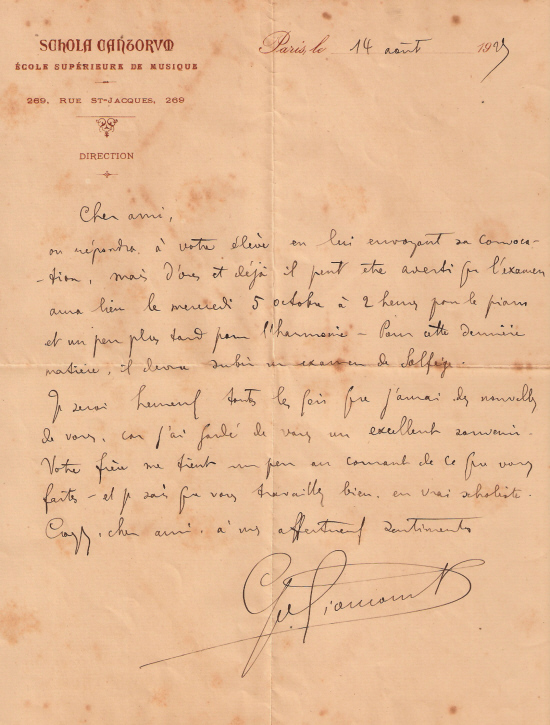 SCHOLA CANTORVM
ÉCOLE SUPÉRIEURE DE MUSIQUE
269, RUE ST-JACQUES, 269
DIRECTION
Paris, le 14 août 192
Cher ami,
on répondra à votre élève en lui envoyant sa convoca-
-tion, mais d'ores et déjà il peut être averti que l'examen
aura lieu le mercredi 5 octobre à 2 heures pour le piano
et un peu plus tard pour l'harmonie - Pour cette dernière
matière, il devra subir un examen de solfège.
Je serai heureux toutes les fois que j'aurai des nouvelles
de vous, car j'ai gardé de vous un excellent souvenir.
Votre frère me tient un peu au courant de ce que vous
faites - et je sais que vous travaillez bien, en vrai scholiste.
Croyez, cher ami, à mes affectueux sentiments